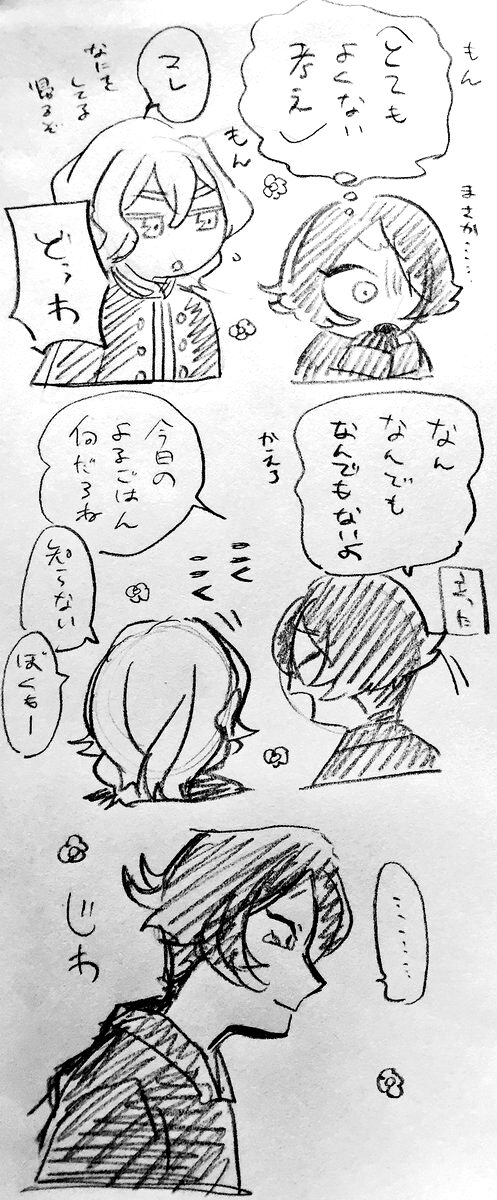 もん
とても
よくない
考え
まさか……
もん
オレ
なにを
してる
帰るぞ
どぅわ
なん
なんでも
なんでもないよ
かえろ
今日の
よるごはん
何だろね
知らない
ぼくもー
………
じわ